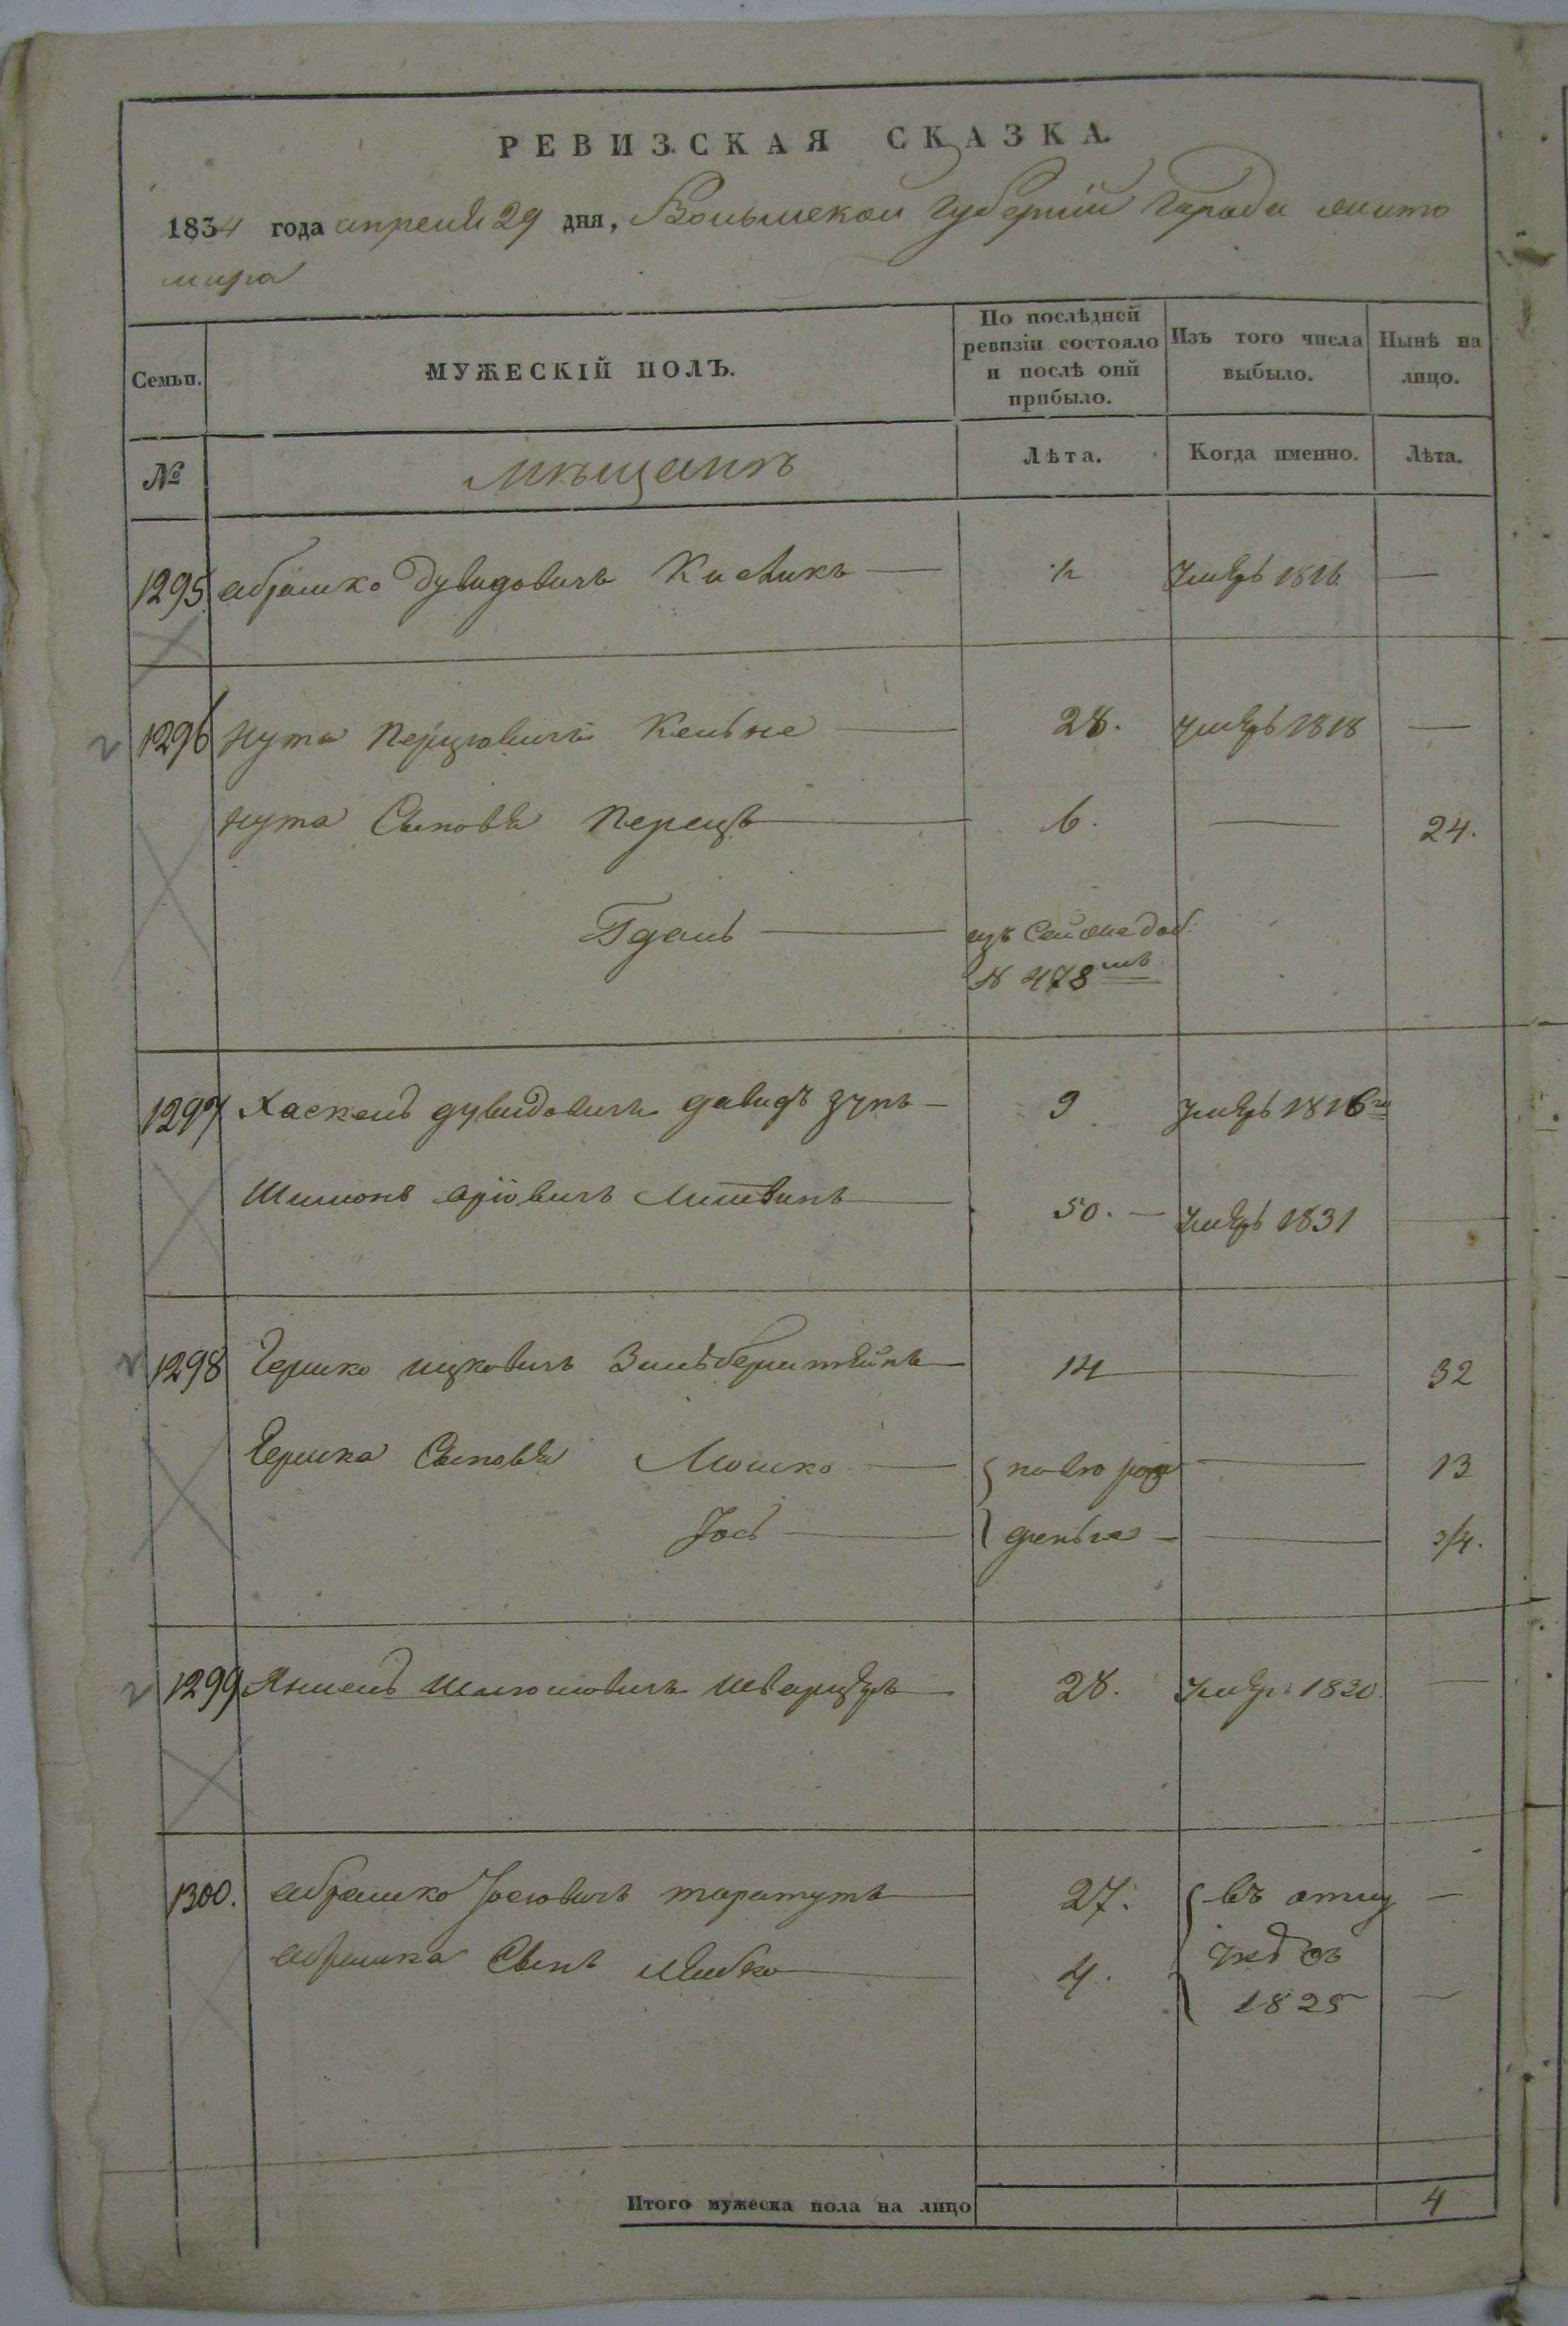 РЕВИЗСКАЯ СКАЗКА.
1834 года апреля 29 дня, Волынской губернии города жито
мира
Семьи.
МУЖЕСКІЙ ПОЛЪ.
По послѣдней ревизіи состояло и послѣ оній прибыло.
Изъ того числа выбыло.
Нынѣ на лицо.
№
мѣщанъ
Лѣта.
Когда именно.
Лѣта.
1295 абрамко Дувидовичъ — ½ умеръ 1816 —
1296 нута Перцовичъ — 28. умеръ 1818 —
нута Сыновья Перецъ — 6. — 24.
— изъ Семьи доб:
№ 478
1297 Хаскель дувидовичъ давидъ зунъ — 9 умеръ 1816го
Шимонъ аріовичъ Литвинъ — 50. — умеръ 1831 —
1298 Гершко ицковичъ Зильберштейнъ — 14 — 32
Гершка Сыновья Мошко — { ново рож — 13
Іось — { денные — — 3/4.
1299 Янкель Шварцеръ — 28. умеръ 1830. —
1300. абрамко Іосіовичъ таратутъ — 27. { въ отлу —
абрамка Сынъ Лейбко — 4. { 
1825 —
Итого мужеска пола на лицо 4